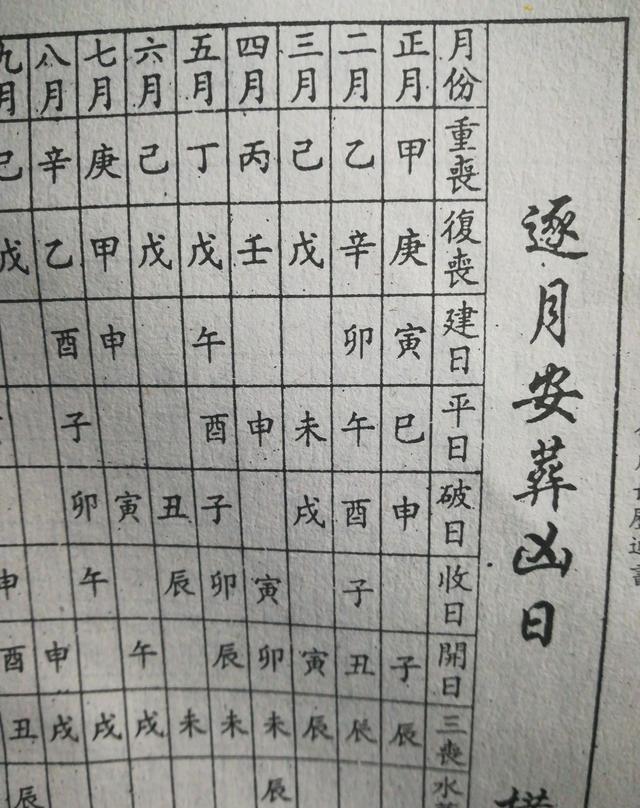 逐月安葬凶日
月份 重喪 復喪 建日 平日 破日 收日 開日 三喪 水
正月 甲 庚 寅 巳 申 子 辰
二月 乙 辛 卯 午 酉 子 丑 辰
三月 己 戊 未 戌 寅 辰
四月 丙 壬 申 寅 卯 未 辰
五月 丁 戊 午 酉 子 卯 辰 未
六月 己 戊 丑 辰 未
七月 庚 甲 申 寅 午 戌
八月 辛 乙 酉 子 卯 午 戌
九月 己 戊 申 戌
申 酉 丑 辰